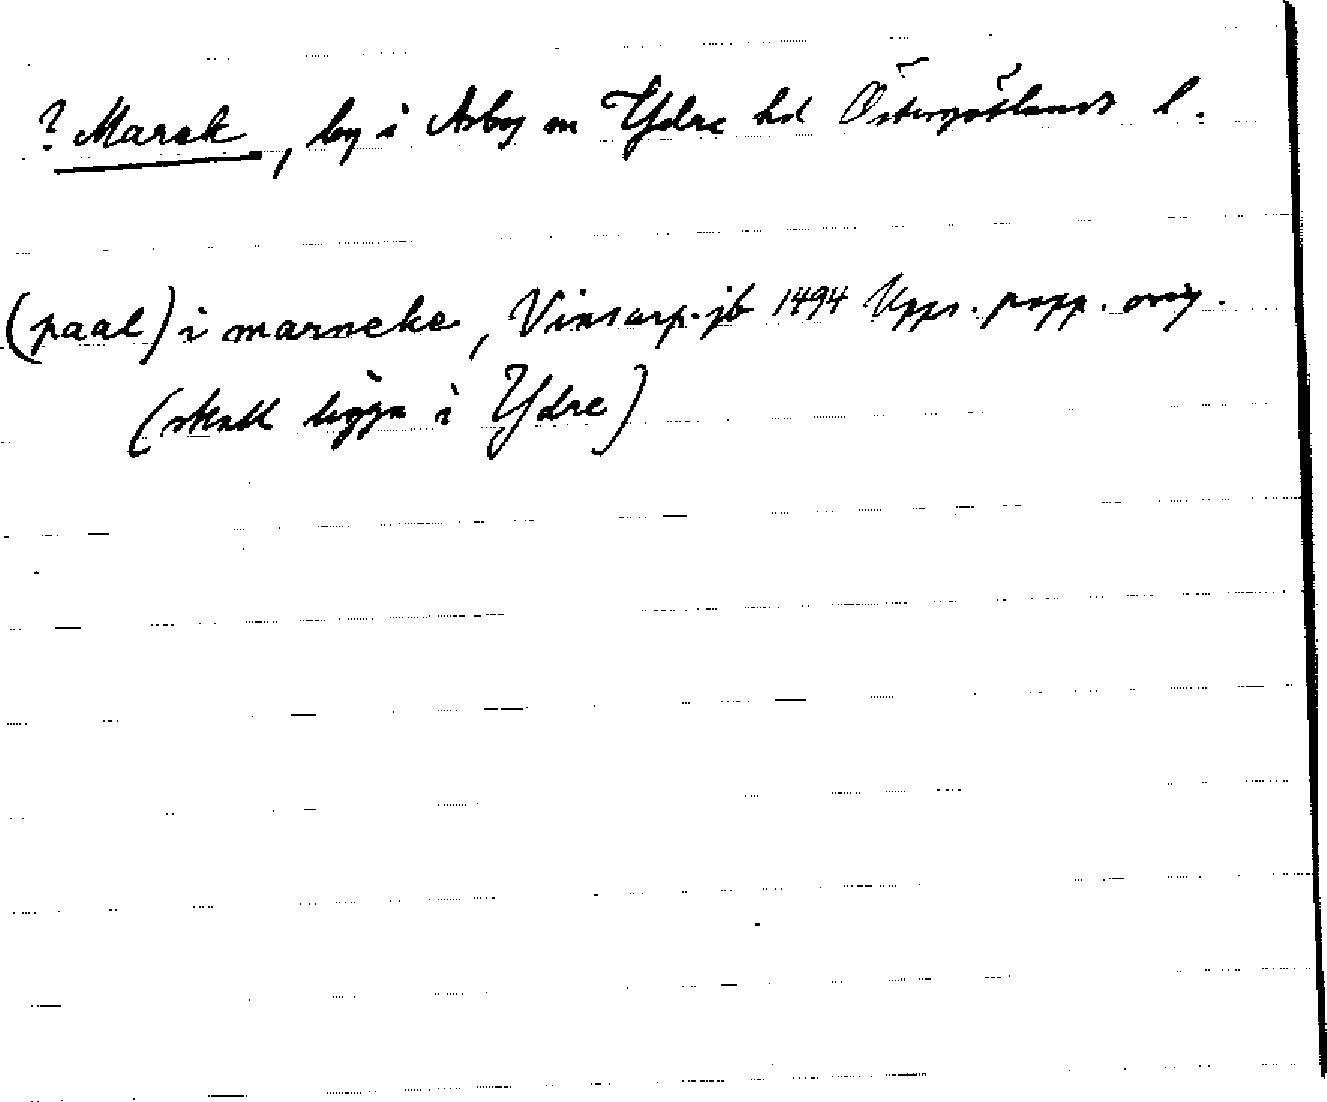 ? Marek, by i Asby sn Ydre hd Östergötlands l.
(paal) i marneke, Vinsarp. jb 1494 Upps. papp. orig.
(skall ligga i Ydre)